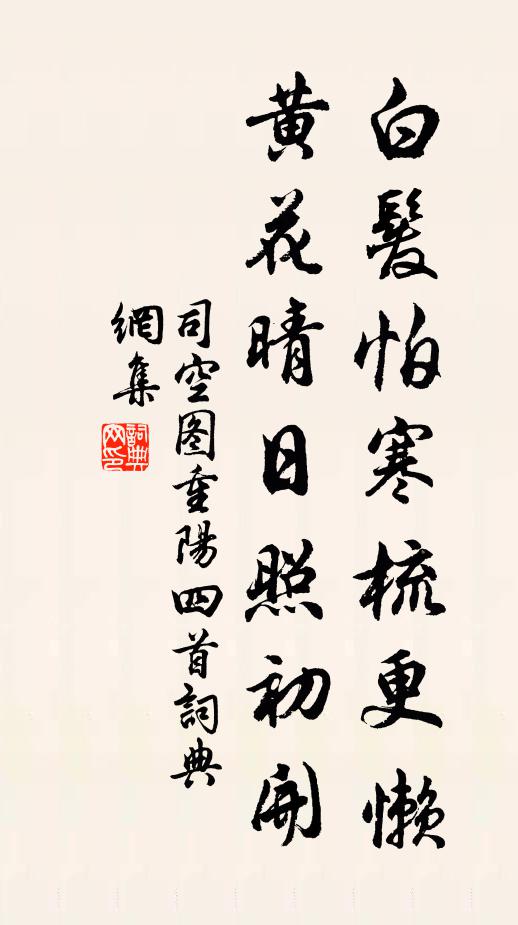 白髮怕寒梳更懶
黃花晴日照初開
司空图重陽四首詞典
網集
詞典網印